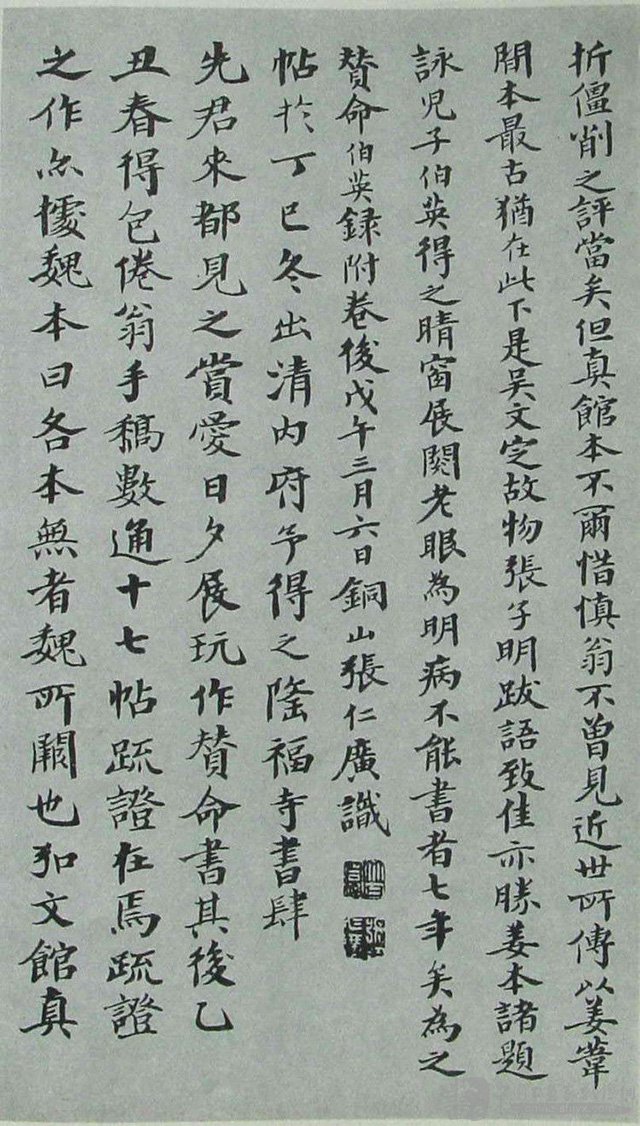 折僵削之評當矣但真館本不爾惜慎翁不曾見近世所傳以姜葦
開本最古猶在此下是吳文定故物張子明跋語致佳亦勝姜本諸題
詠兒子伯英得之晴窗展閱老眼為明病不能書者七年矣為之
贊命伯英錄附卷後戊午三月六日銅山張仁廣識
帖於丁巳冬出清內府予得之隆福寺書肆
先君來都見之賞愛日夕展玩作贊命書其後乙
丑春得包倦翁手稿數通十七帖疏證在焉疏證
之作亦據魏本曰各本無者魏所闕也知文館真